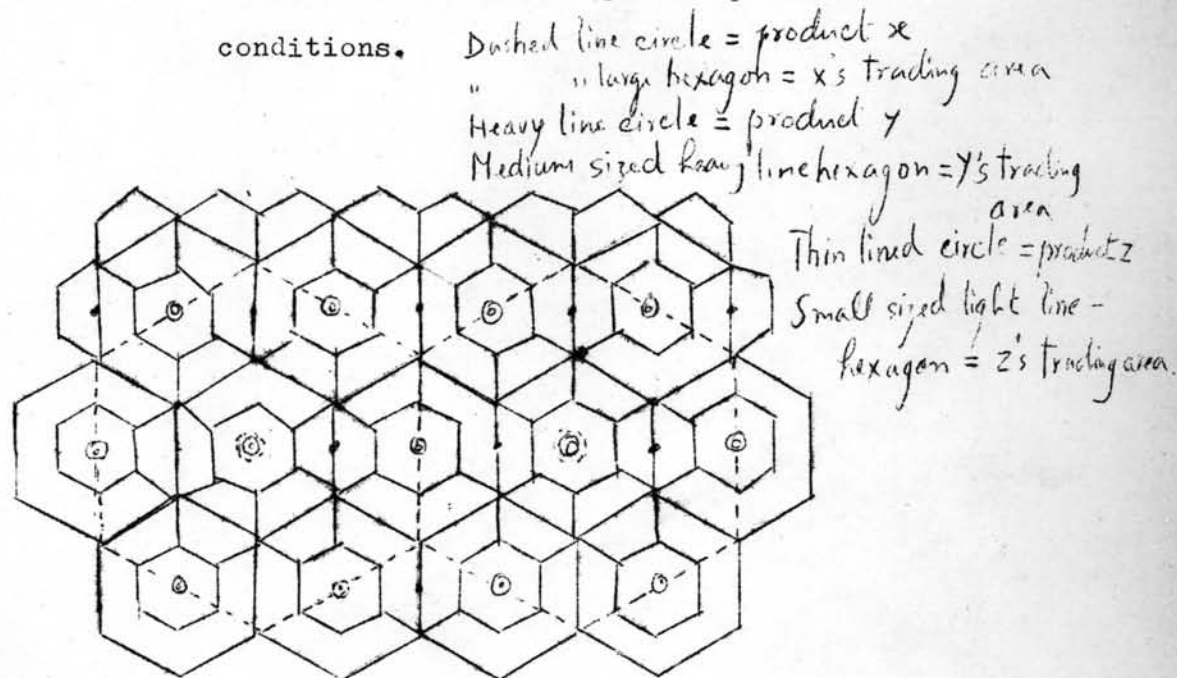 conditions.
Dashed line circle = product x
" " large hexagon = x's trading area
Heavy line circle = product y
Medium sized heavy line hexagon = Y's trading
area
Thin lined circle = product z
Small sized light line -
hexagon = z's trading area.